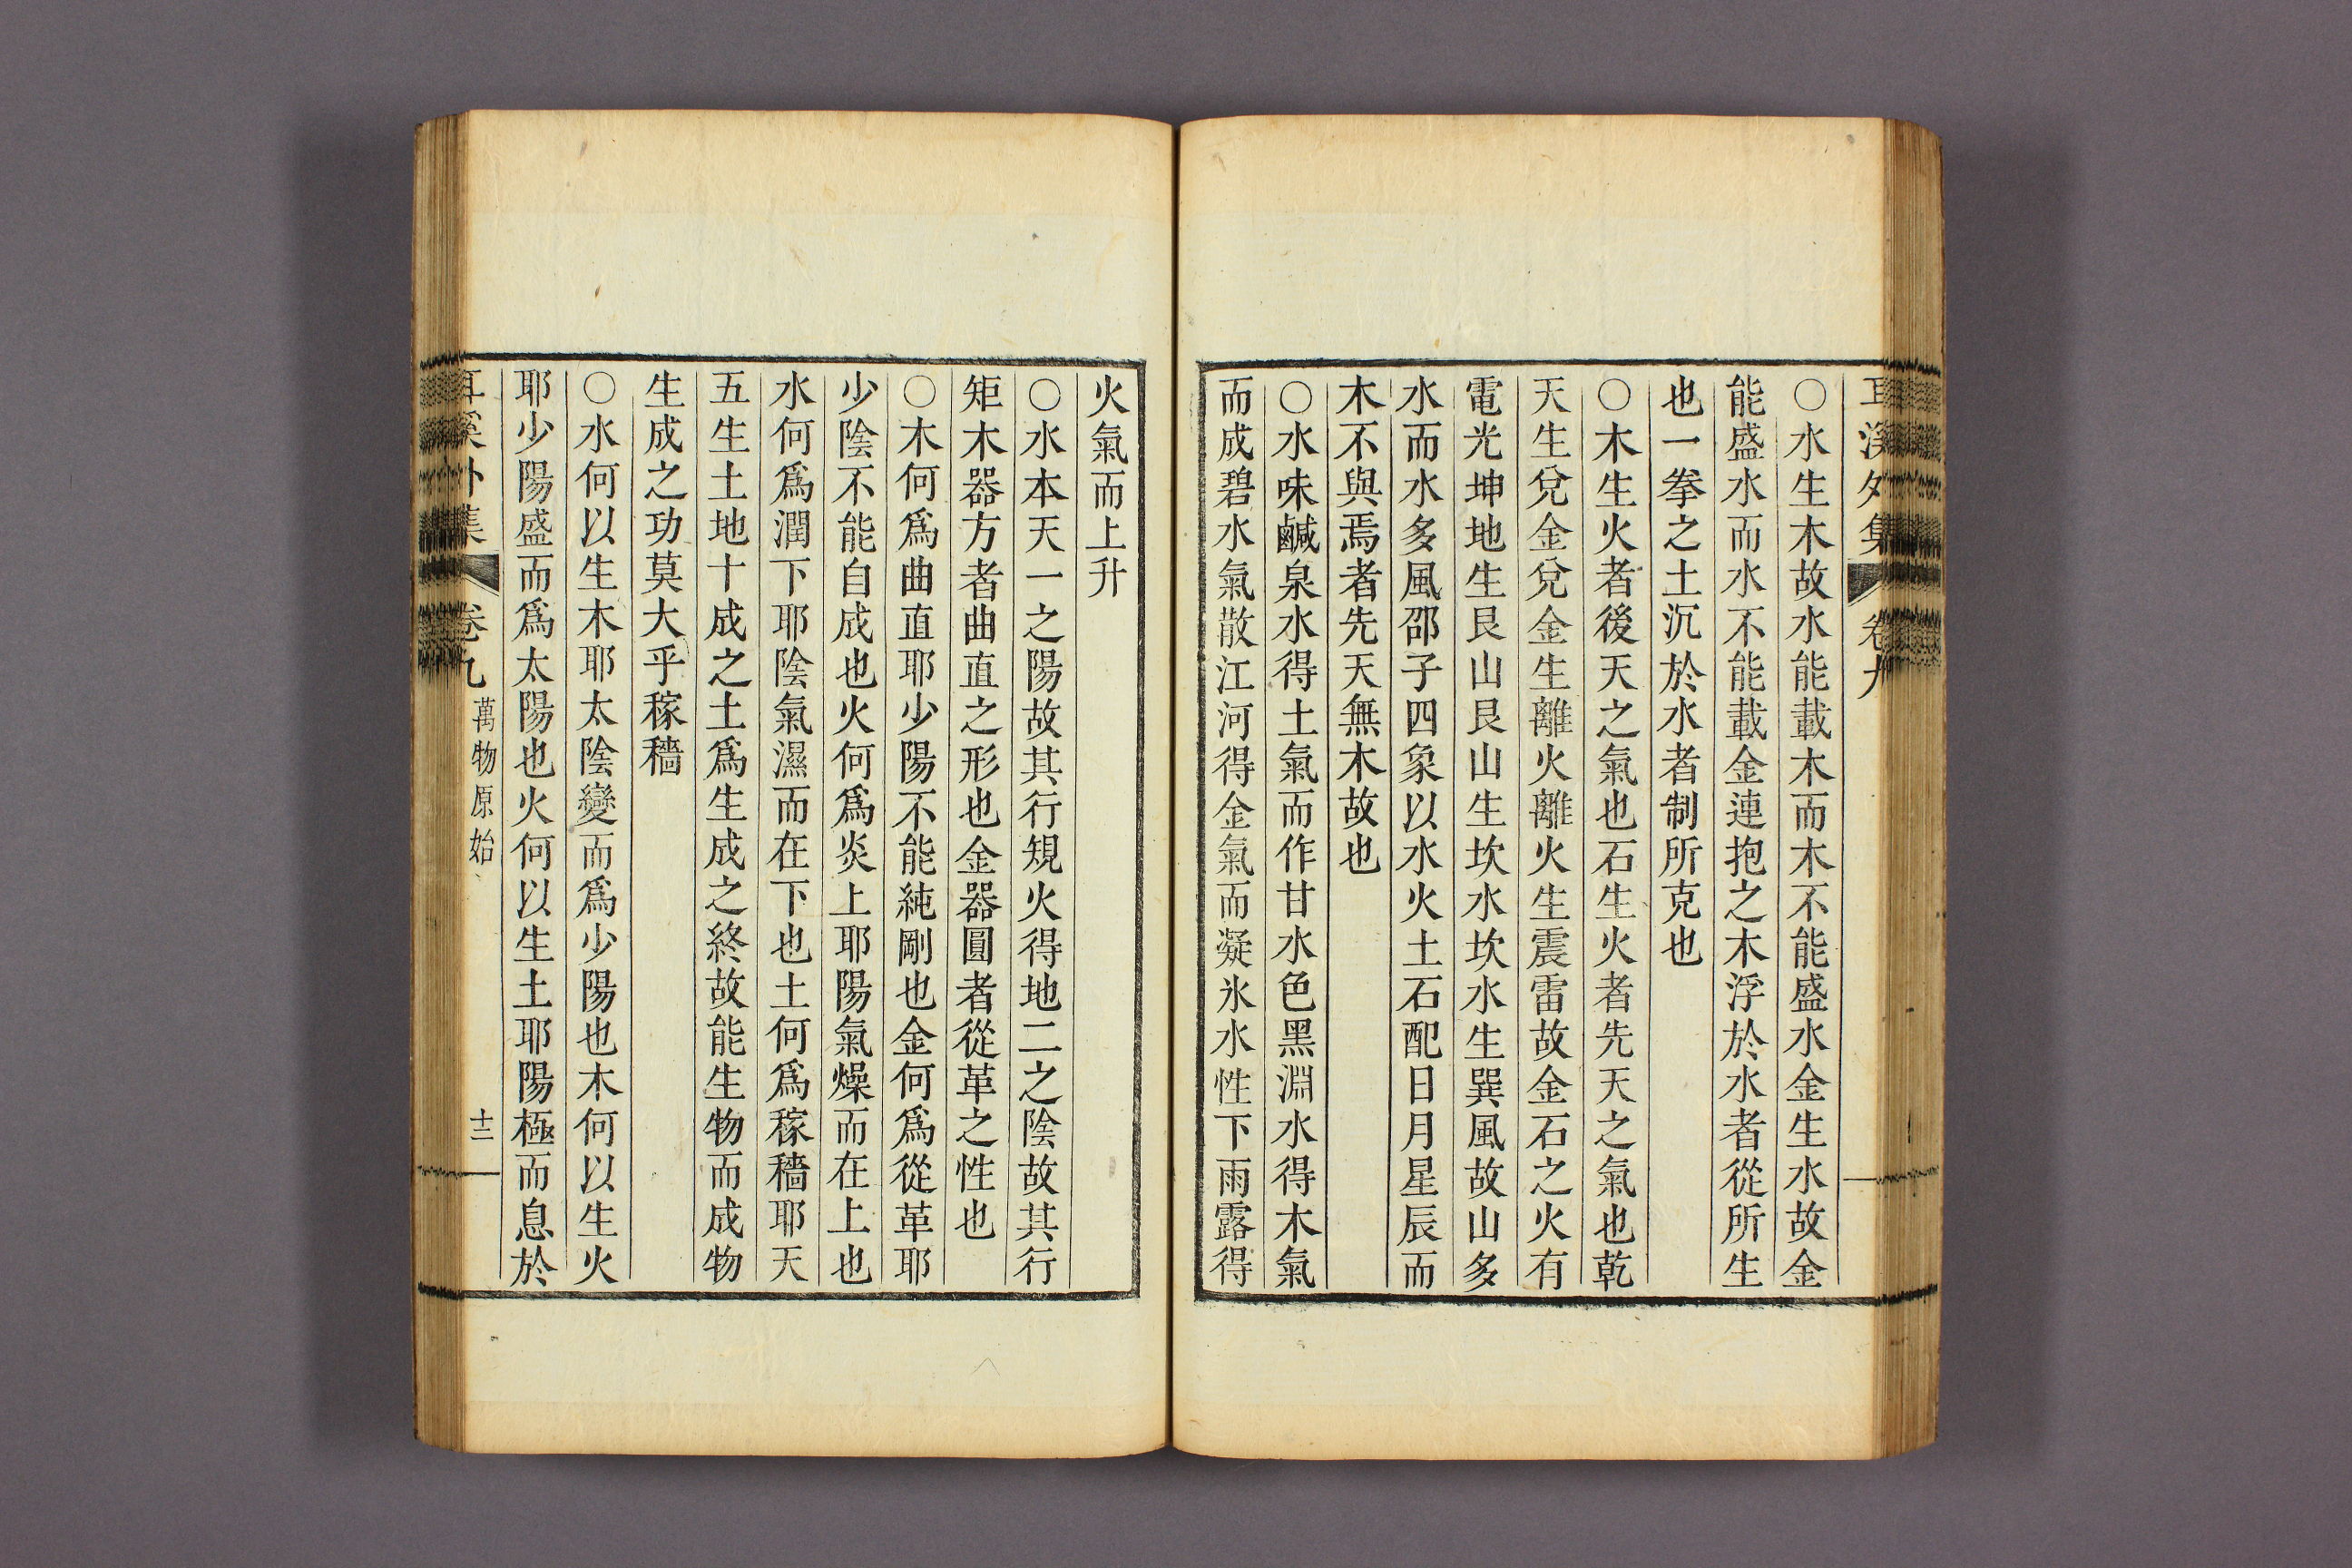 耳溪外集 卷九
○水生木故水能載木而木不能盛水金生水故金
能盛水而水不能載金連抱之木浮於水者從所生
也一拳之土沉於水者制所克也
○木生火者後天之氣也石生火者先天之氣也乾
天生兌金兌金生離火離火生震雷故金石之火有
電光坤地生艮山艮山生坎水坎水生巽風故山多
水而水多風邵子四象以水火土石配日月星辰而
木不與焉者先天無木故也
○水味鹹泉水得土氣而作甘水色黑淵水得木氣
而成碧水氣散江河得金氣而凝氷水性下雨露得
火氣而上升
○水本天一之陽故其行規火得地二之陰故其行
矩木器方者曲直之形也金器圓者從革之性也
○木何爲曲直耶少陽不能純剛也金何爲從革耶
少陰不能自成也火何爲炎上耶陽氣燥而在上也
水何爲潤下耶陰氣濕而在下也土何爲稼穡耶天
五生土地十成之土爲生成之終故能生物而成物
生成之功莫大乎稼穡
○水何以生木耶太陰變而爲少陽也木何以生火
耶少陽盛而爲太陽也火何以生土耶陽極而息於
耳溪外集 卷九 萬物原始 十二